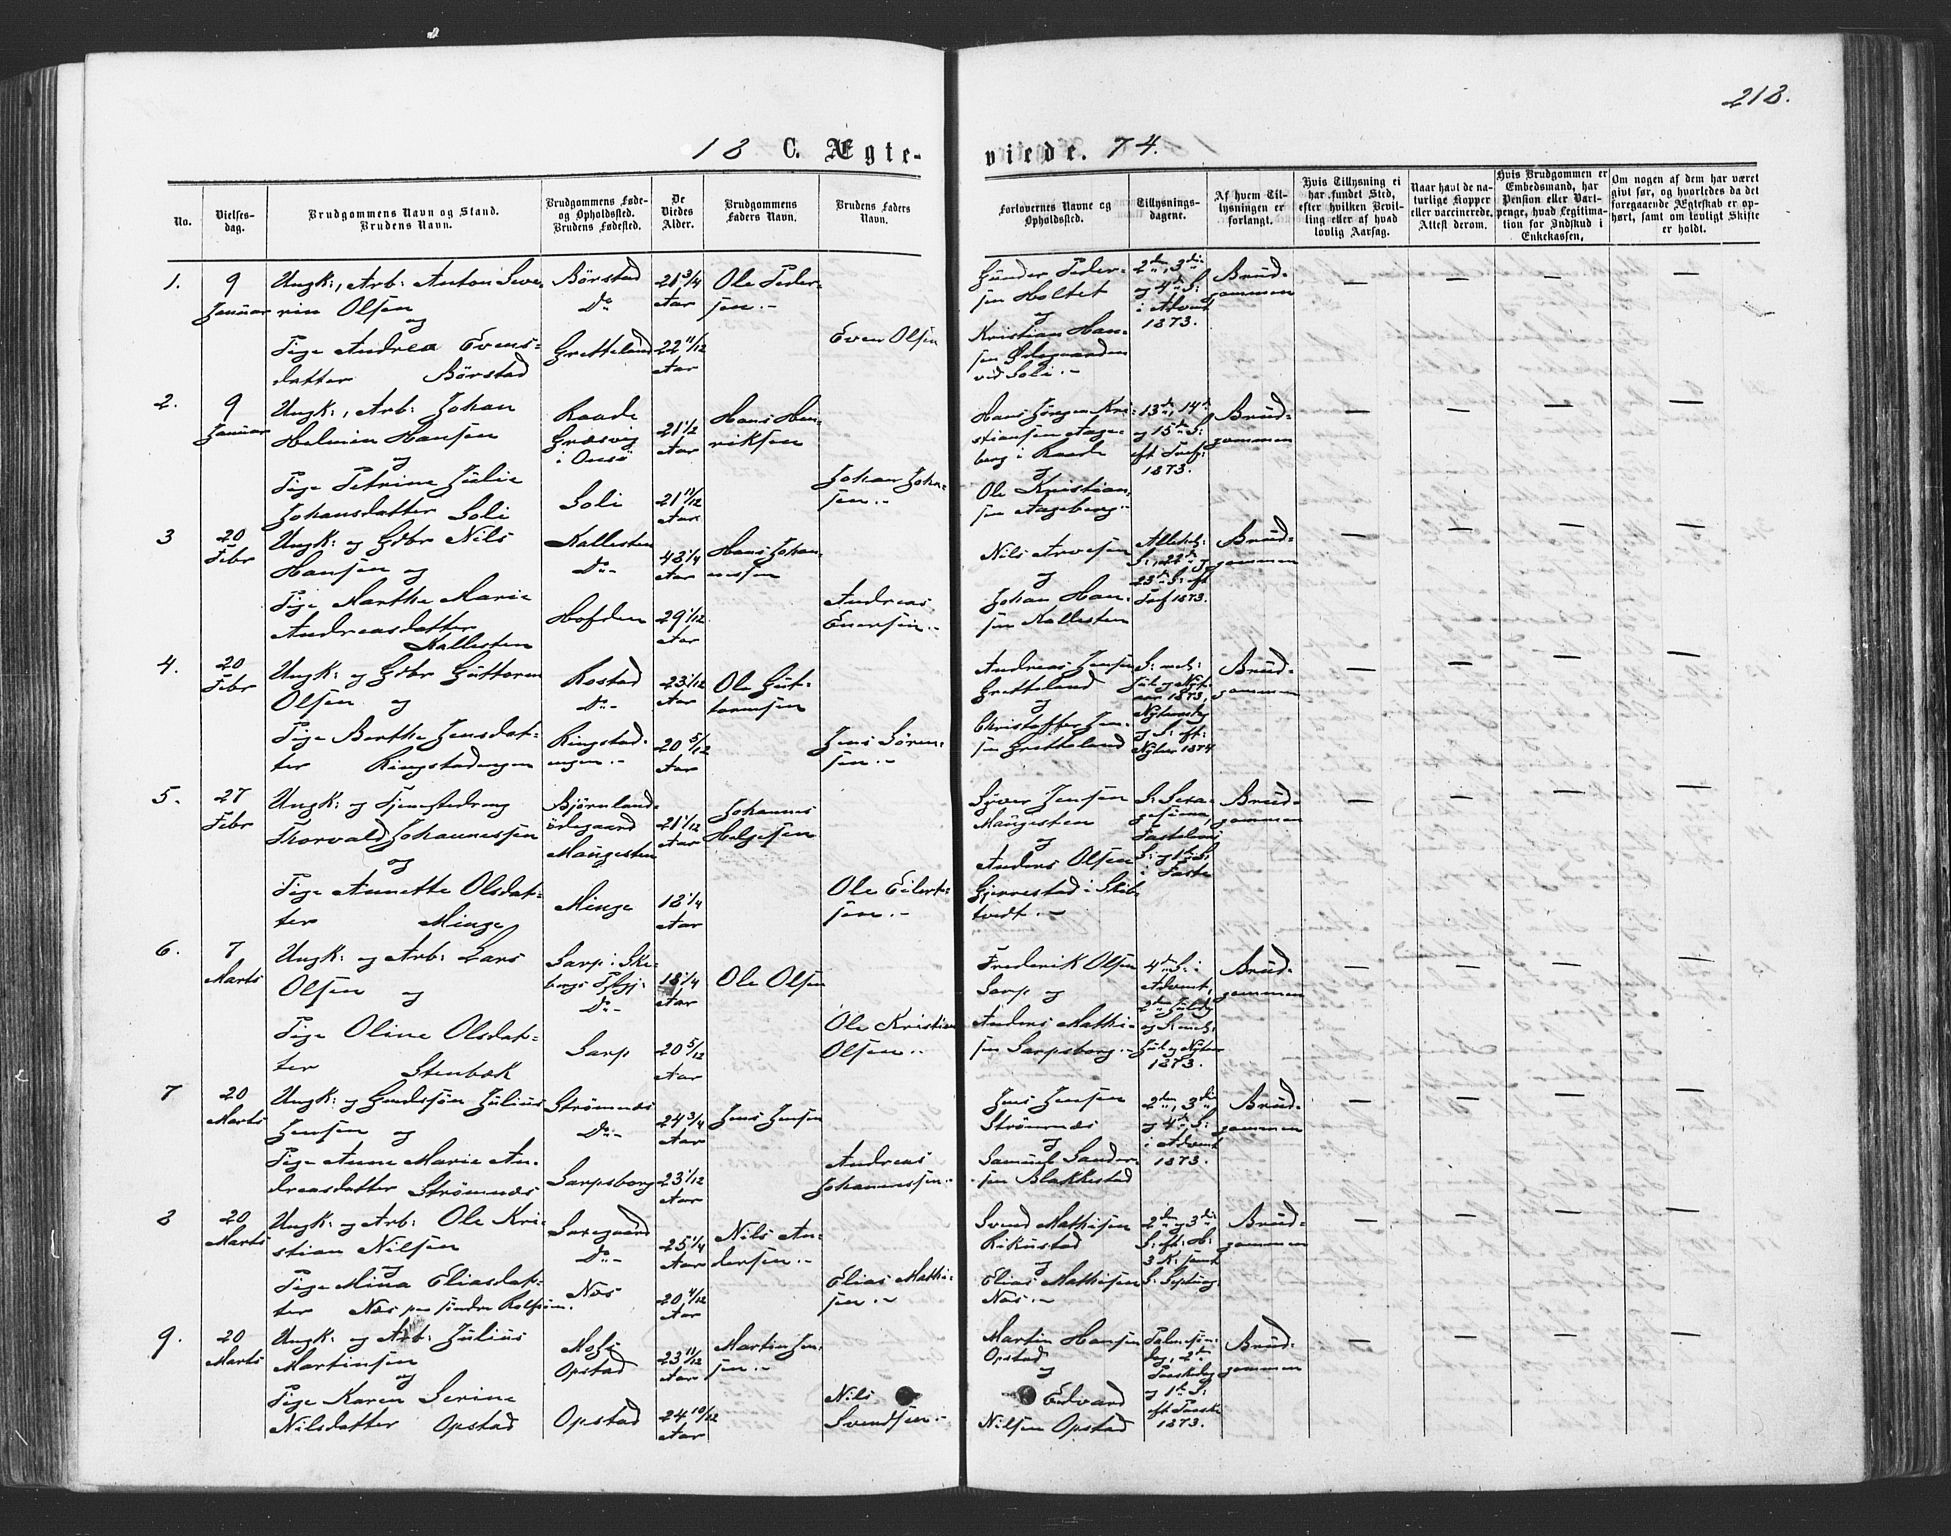 218.
18 C. Ægte-
viede. 74.
No.
Vielses-
dag.
Brudgommens Navn og Stand.
Brudens Navn.
Brudgommens Føde-
og Opholdssted.
Brudens Fødested.
De
Viedes
Alder.
Brudgommens
Faders Navn.
Brudens Faders
Navn.
Forlovernes Navne og
Opholdssted.
Tillysnings-
dagene.
Af hvem Til-
lysningen er
forlangt.
Hvis Tillysning ei
har fundet Sted,
efter hvilken Bevil-
ling eller af hvad
lovlig Aarsag.
Naar havt de na-
turlige Kopper
eller vaccinerede.
Attest derom.
Hvis Brudgommen er
Embedsmand, har
Pension eller Vart-
penge, hvad Legitima-
tion for Indskud i
Enkekassen,
Om nogen af dem har været
givt før, og hvorledes da det
foregaaende Ægteskab er op-
hørt, samt om lovligt Skifte
er holdt.
1.
9
Januar
Ungk:, Arb: Anton Seve-
rin Olsen
og
Pige Andrea Evens-
datter Börstad
Börstad
Do
Gretteland
21 3/4
Aar
22 11/12
Aar
Ole Peder-
sen.-
Even Olsen
Gunder Peder-
sen Holtet
og
Kristian Han-
sen Ødegaarden
ved Soli.-
2den, 3die
og 4de S:
i Advent
1873.
Brud-
gommen
— — — —
2.
9
Januar
Ungk:, Arb: Johan
Helmin Hansen
og
Pige Petrine Julie
Johansdatter Soli
Raade
Græsvig
i Onsø
Soli
21 1/2
Aar
21 11/12
Aar
Hans Hen-
riksen
Johan Johan-
sen.-
Hans Jörgen Kri-
stiansen Aage-
berg i Raade
og
Ole Kristian-
sen Aageberg.-
13de, 14de
og 15de S:
eft Tref:
1873.
Brud-
gommen
— — — —
3
20
Febr
Ungk: og Gdbr Nils
Hansen og
Pige Marthe Marie
Andreasdatter
Kallesten
Kallesten
Do-
Hofden
43 1/4
Aar
29 1/12
Aar
Hans Johan-
nessen
Andreas
Enersen.-
Nils Arvesen
og
Johan Han-
sen Kallesten
Allehel:
S:, 22de og
23de S: eft
Tref 1873.
Brud-
gommen
— — — —
4.
20
Febr
Ungk: og Gdbr Guttorm
Olsen og
Pige Berthe Jensdat-
ter Ringstadengen
Rostad
Do-
Ringstad-
engen.-
23 1/12
Aar
20 5/12
Aar
Ole Gut-
tormsen
Jens Sören-
sen.-
Andreas Jensen
Gretteland
og
Christoffer Jen-
sen Gretteland
S: mel:
Jul og Nyt-
aar 1873,
Nytaarsdag
og S: eft:
Nytaar 1874
Brud-
gommen
— — — —
5.
27
Febr
Ungk: og Tjenestedreng
Thorvald Johannessen
og
Pige Annette Olsdat-
ter Minge
Björnland-
ödegaard
Maugesten
Minge
21 1/12
Aar
18 1/4
Aar
Johannes
Helgesen
Ole Eilert-
sen.-
Syver Jensen
Maugesten
og
Anders Olsen
Gjennestad i Skib-
tvedt.-
S: Sexa-
gesima,
Fastelavns
S: og 1ste S:
i Faste
Brud-
gommen
— — — —
6.
7
Marts
Ungk: og Arb: Lars
Olsen og
Pige Oline Olsdat-
ter Stenbæk
Sarp i Ske-
bergs Psgj:
Do-
Sarp
18 1/4
Aar
20 5/12
Aar
Ole Olsen
Ole Kristian
Olsen.-
Frederik Olsen
Sarp og
Anders Mathi-
sen Sarpsborg.-
4de S: i
Advent,
2den Juledag
og S: mel:
Jul og Nytaar
1873.
Brud-
gommen
— — — —
7
20
Marts
Ungk: og Gaardsøn Julius
Jensen og
Pige Anne Marie An-
dreasdatter Strömnæs
Strömnæs
Do-
Sarpsborg
24 3/4
Aar
23 1/12
Aar
Jens Jensen
Andreas
Johannessen.-
Jens Jensen
Strömnæs
og
Samuel Sander-
sen Blakkestad
2den, 3die
og 4de S:
i Advent
1873.
Brud-
gommen
— — — —
8
20
Marts
Ungk: og Arb: Ole Kri-
stian Nilsen
og
Pige Mina Eliasdat-
ter Næs paa søndre Rolfsøen.
Soregaard
Do-
Næs
25 1/4
Aar
20 4/12
Aar
Nils An-
dersen.-
Elias Mathi-
sen.-
Svend Mathisen
Rikustad
og
Elias Mathisen
Næs.-
2den og 3die
S: eft: H:
3 K: samt
S: Septuag:
Brud-
gommen
— — — —
9.
20
Marts
Ungk: og Arb: Julius
Martinsen
og
Pige Karen Serine
Nilsdatter Opstad
Moss
Opstad
Opstad
23 11/12
Aar
24 10/12
Aar
Martin Jen-
sen.-
Nils
Svendsen.-
Martin Hansen
Opstad
og
Edvard
Nilsen Opstad
Palmesøn-
dag, 2den
Paaskedag
og 1ste S:
eft Paaske
1873.
Brud-
gommen
— — — —